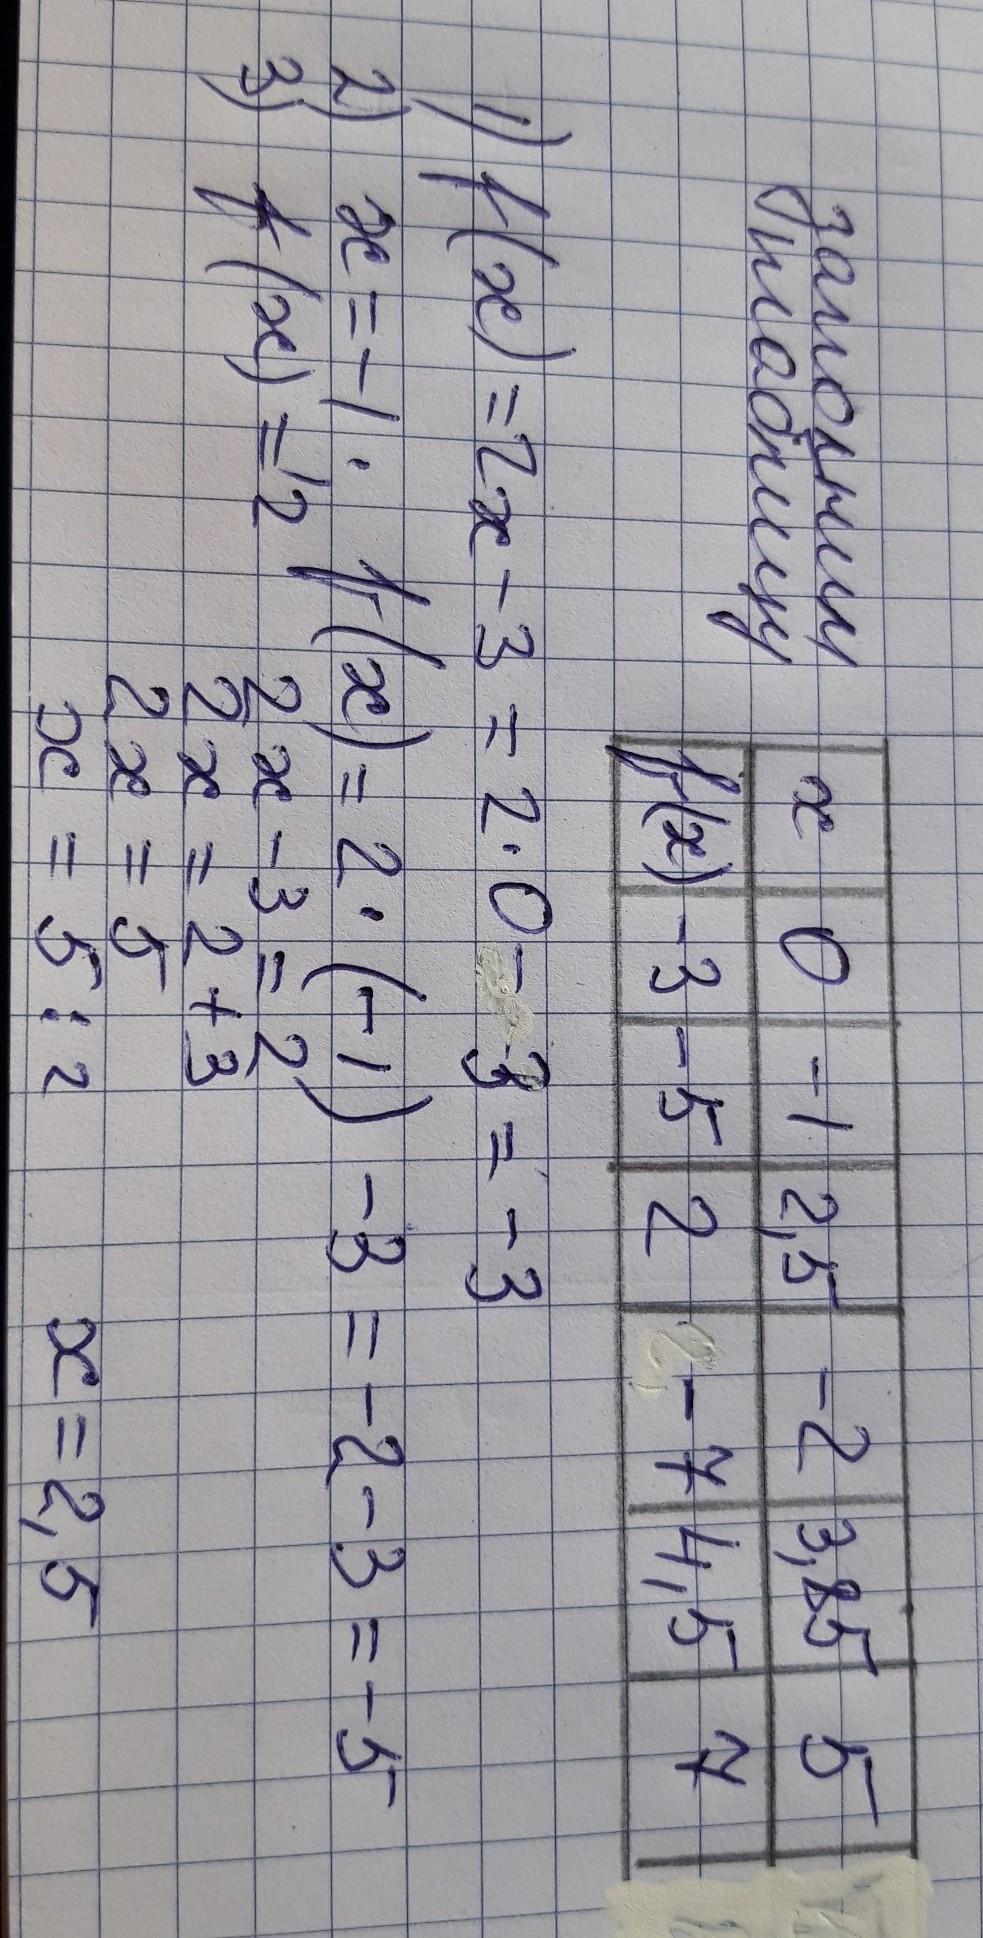 заполним
таблицу
x 0 -1 2,5 -2 3,85 5
f(x) -3 -5 2 -7 4,5 7
1) f(x) = 2x - 3 = 2·0 - 3 = -3
2) x = -1. f(x) = 2·(-1) -3 = -2 - 3 = -5
3) f(x) = 2 2x - 3 = 2
2x = 2 + 3
2x = 5
x = 5 : 2 x = 2,5